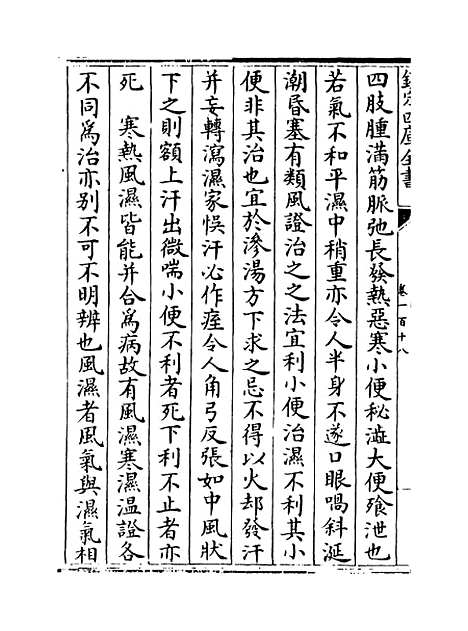 欽定四庫全書
卷一百十八
四肢腫滿筋脈弛長發熱惡寒小便秘澁大便飱泄也
若氣不和平濕中稍重亦令人半身不遂口眼喎斜涎
潮昏塞有類風證治之之法宜利小便治濕不利其小
便非其治也宜於滲湯方下求之忌不得以火却發汗
并妄轉瀉濕家悞汗必作痓令人角弓反張如中風狀
下之則額上汗出微喘小便不利者死下利不止者亦
死　寒熱風濕皆能并合爲病故有風濕寒濕温證各
不同爲治亦别不可不明辨也風濕者風氣與濕氣相